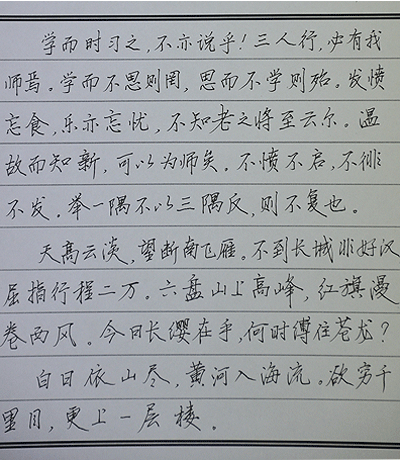 学而时习之,不亦说乎!三人行,必有我
师焉。学而不思则罔,思而不学则殆。发愤
忘食,乐亦忘忧,不知老之将至云尔。温
故而知新,可以为师矣。不愤不启,不悱
不发。举一隅不以三隅反,则不复也。
天高云淡,望断南飞雁。不到长城非好汉
屈指行程二万。六盘山上高峰,红旗漫
卷西风。今日长缨在手,何时缚住苍龙?
白日依山尽,黄河入海流。欲穷千
里目,更上一层楼。